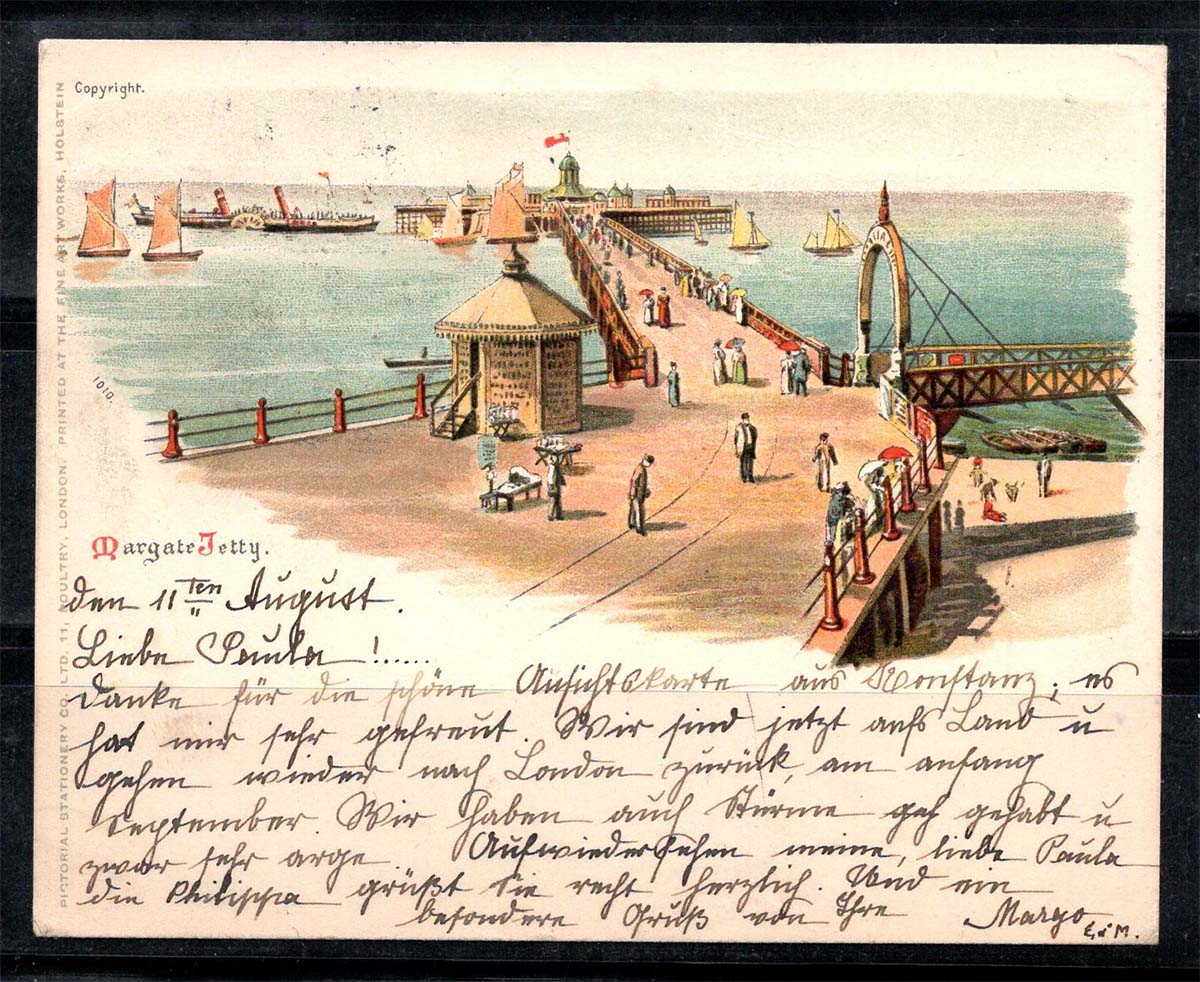 Copyright.
PICTORIAL STATIONERY CO. LTD. 11, MOULTRY, LONDON. PRINTED AT THE FINE ART WORKS, HOLSTEIN
1010.
Margate Jetty.
den 11ten August.
Liebe Paula !......
Danke für die schöne Ansichtskarte aus Konstanz; es
hat mir sehr gefreut. Wir sind jetzt aufs Land u
gehen wieder nach London zurück, am anfang
September. Wir haben auch Stürme geh gehabt u
zwar sehr arge. Aufwiedersehen meine, liebe Paula
die Philippa grüßt Sie recht herzlich. Und ein
besondere Gruß von Ihre Margo
E. d' M.